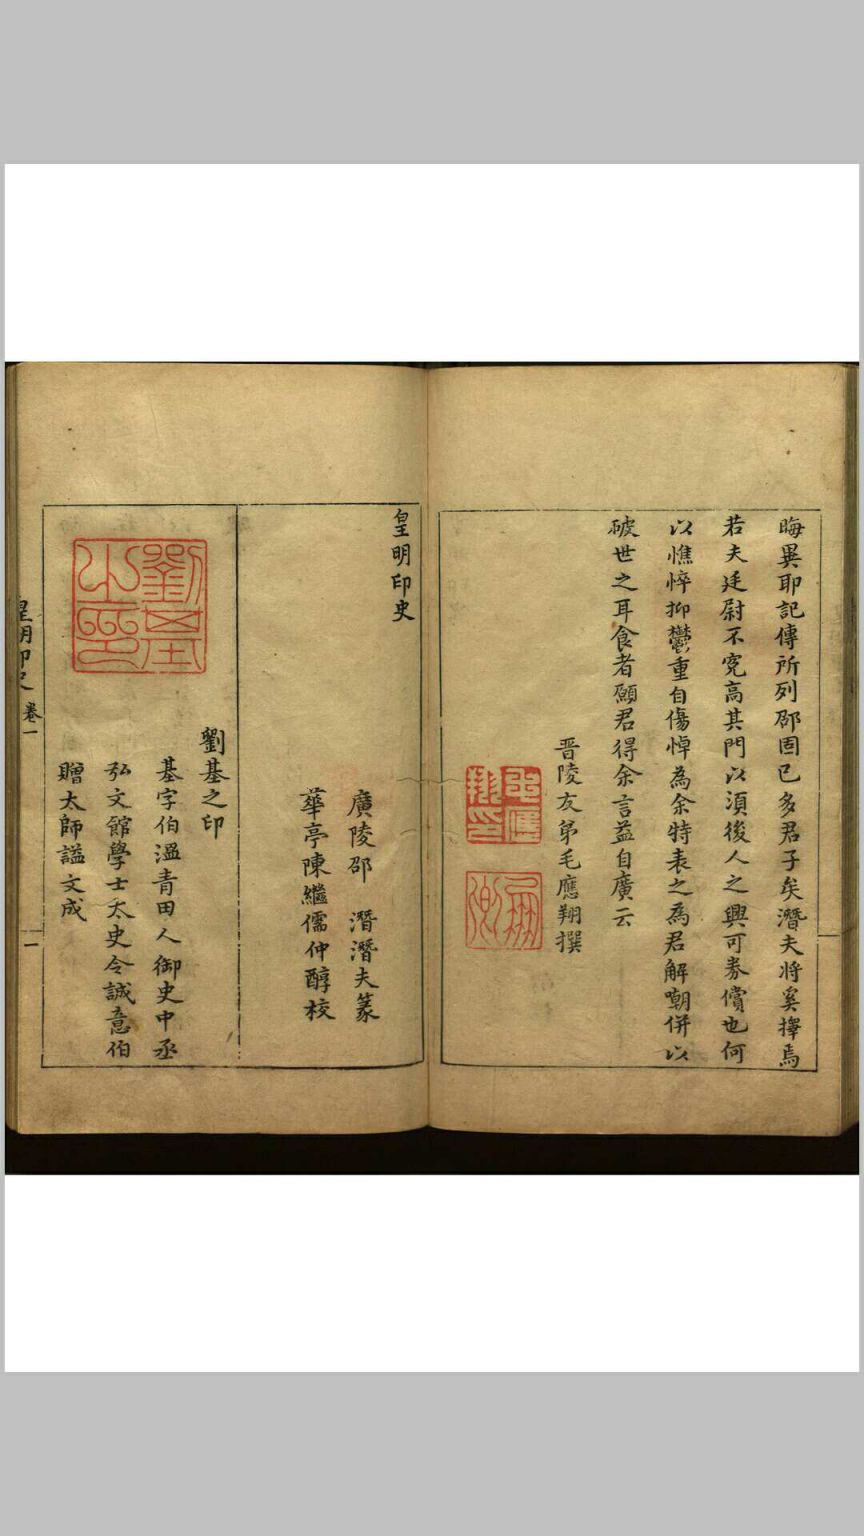 晦異耶記傳所列郘固已多君子矣潛夫將奚擇焉
若夫廷尉不究高其門以須後人之興可券償也何
以憔悴抑鬱重自傷悼為余特表之為君解嘲併以
破世之耳食者願君得余言益自廣云
晉陵友弟毛應翔撰
毛應翔印
皇明印史
廣陵邵 潛潛夫篆
華亭陳繼儒仲醇校
劉基之印
劉基之印
基字伯溫青田人御史中丞
弘文館學士太史令誠意伯
贈太師謚文成
皇明印史 卷一
一